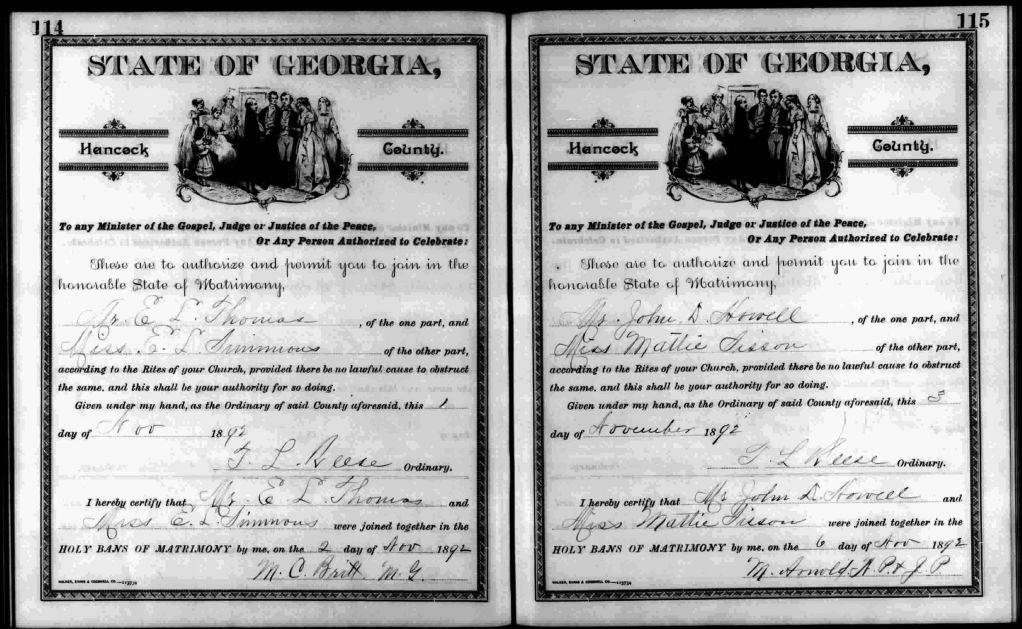 114
STATE OF GEORGIA,
Hancock County.
To any Minister of the Gospel, Judge or Justice of the Peace,
Or Any Person Authorized to Celebrate:
These are to authorize and permit you to join in the
honorable State of Matrimony,
Mr. E. L. Thomas, of the one part, and
Miss. E. L. Simmons of the other part,
according to the Rites of your Church, provided there be no lawful cause to obstruct
the same, and this shall be your authority for so doing.
Given under my hand, as the Ordinary of said County aforesaid, this 1
day of Nov 1892
T. L. Reese Ordinary.
I hereby certify that Mr. E L Thomas and
Miss E. L. Simmons were joined together in the
HOLY BANS OF MATRIMONY by me, on the 2 day of Nov 1892
M. C. Britt, M. G.
115
STATE OF GEORGIA,
Hancock County.
To any Minister of the Gospel, Judge or Justice of the Peace,
Or Any Person Authorized to Celebrate:
These are to authorize and permit you to join in the
honorable State of Matrimony,
Mr. John D. Howell, of the one part, and
Miss Mattie Sisson of the other part,
according to the Rites of your Church, provided there be no lawful cause to obstruct
the same, and this shall be your authority for so doing.
Given under my hand, as the Ordinary of said County aforesaid, this 3
day of November 1892
T. L Reese Ordinary.
I hereby certify that Mr John D. Howell and
Miss Mattie Sisson were joined together in the
HOLY BANS OF MATRIMONY by me, on the 6 day of Nov 1892
M. Arnold, N. P. & J. P.